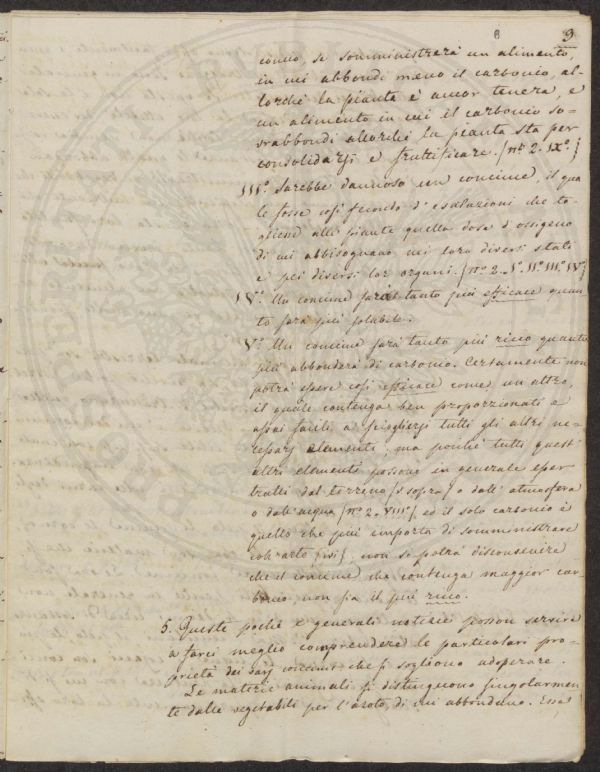 8 9
concio, se somministrerà un alimento,
in cui abbondi meno il carbonio, al-
lorchè la pianta è ancor tenera, e
un alimento in cui il carbonio so-
vrabbondi allorchè la pianta sta per
consolidarsi e fruttificare. (nº 2. IXº.)
IIIº. Sarebbe dannoso un concime, il qua
le fosse così fecondo d'esalazioni che to-
gliesse alle piante quella dose d'ossigeno
di cui abbisognano nei loro diversi stati
e pei diversi lor organi. (nº 2. Iº. IIº. IIIº. IVº)
IVº. Un concime sarà tanto più efficace quan
to sarà più solubile.
Vº. Un concime sarà tanto più ricco quanto
più abbonderà di carbonio. Certamente non
potrà essere così efficace come un altro,
il quale contenga ben proporzionati e
assai facili a sciogliersi tutti gli altri ne-
cessarj elementi; ma poichè tutti quest'
altri elementi possono in generale esser
tratti dal terreno (V. sopra) o dall'atmosfera
o dall'acqua (nº 2. VIIIº), ed il solo carbonio è
quello che più importa di somministrare
coll'arte (ivi), non si potrà disconvenire
che il concime che contenga maggior car-
bonio, non sia il più ricco.
5. Queste poche e generali notizie posson servire
a farci meglio comprendere le particolari pro-
prietà dei varj concimi che si sogliono adoperare.
Le materie animali si distinguono singolarmen
te dalle vegetabili per l'azoto, di cui abbondano. Esse